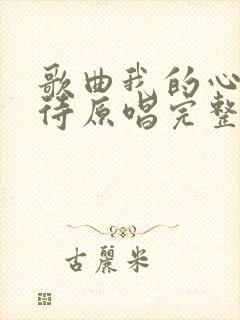 歌曲我的心
待原唱完整
古丽米